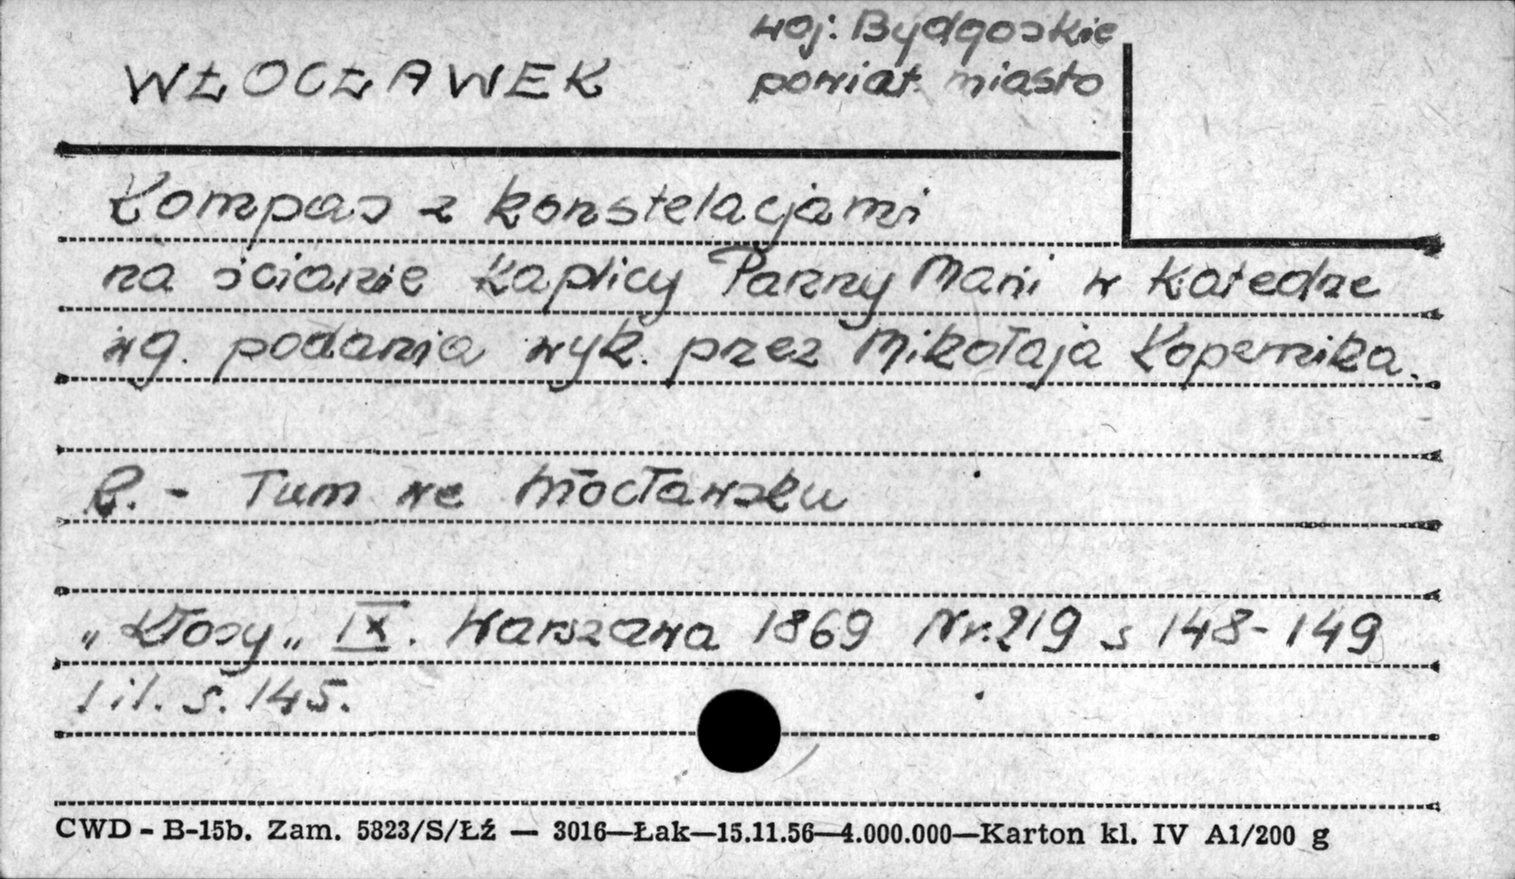 woj: Bydgoskie
WŁOCŁAWEK powiat. miasto
Kompas z konstelacjami
na ścianie Kaplicy Panny Marii w Katedrze
wg. podania wyk. przez Mikołaja Kopernika.
R. - Tum we Włocławsku
„Kłosy„ IX. Warszawa 1869 Nr.219 s 148-149
1 il. s. 145.
CWD - B-15b. Zam. 5823/S/Łź — 3016—Łak—15.11.56—4.000.000—Karton kl. IV A1/200 g